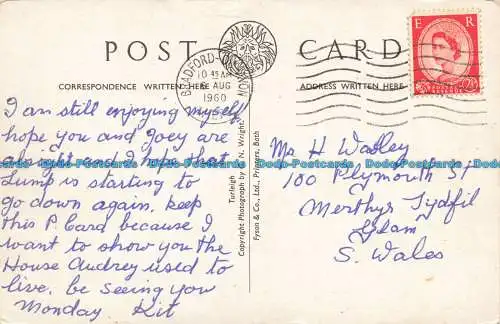 POST CARD
CORRESPONDENCE WRITTEN HERE
ADDRESS WRITTEN HERE
BRADFORD-ON
10 45 AM
AUG
1960
E R
2½
I am still enjoying myself
hope you and Joey are
alright and I hope that
Lump is starting to
go down again. keep
this P. Card because I
want to show you the
House Audrey used to
live. be seeing you
Monday Kit
Turleigh
Copyright Photograph by R. N. Wright,
Fyson & Co., Ltd., Printers, Bath
Mrs H Wadley
100 Plymouth St
Merthyr Tydfil
Glam
S. Wales
Dodo-Postcards